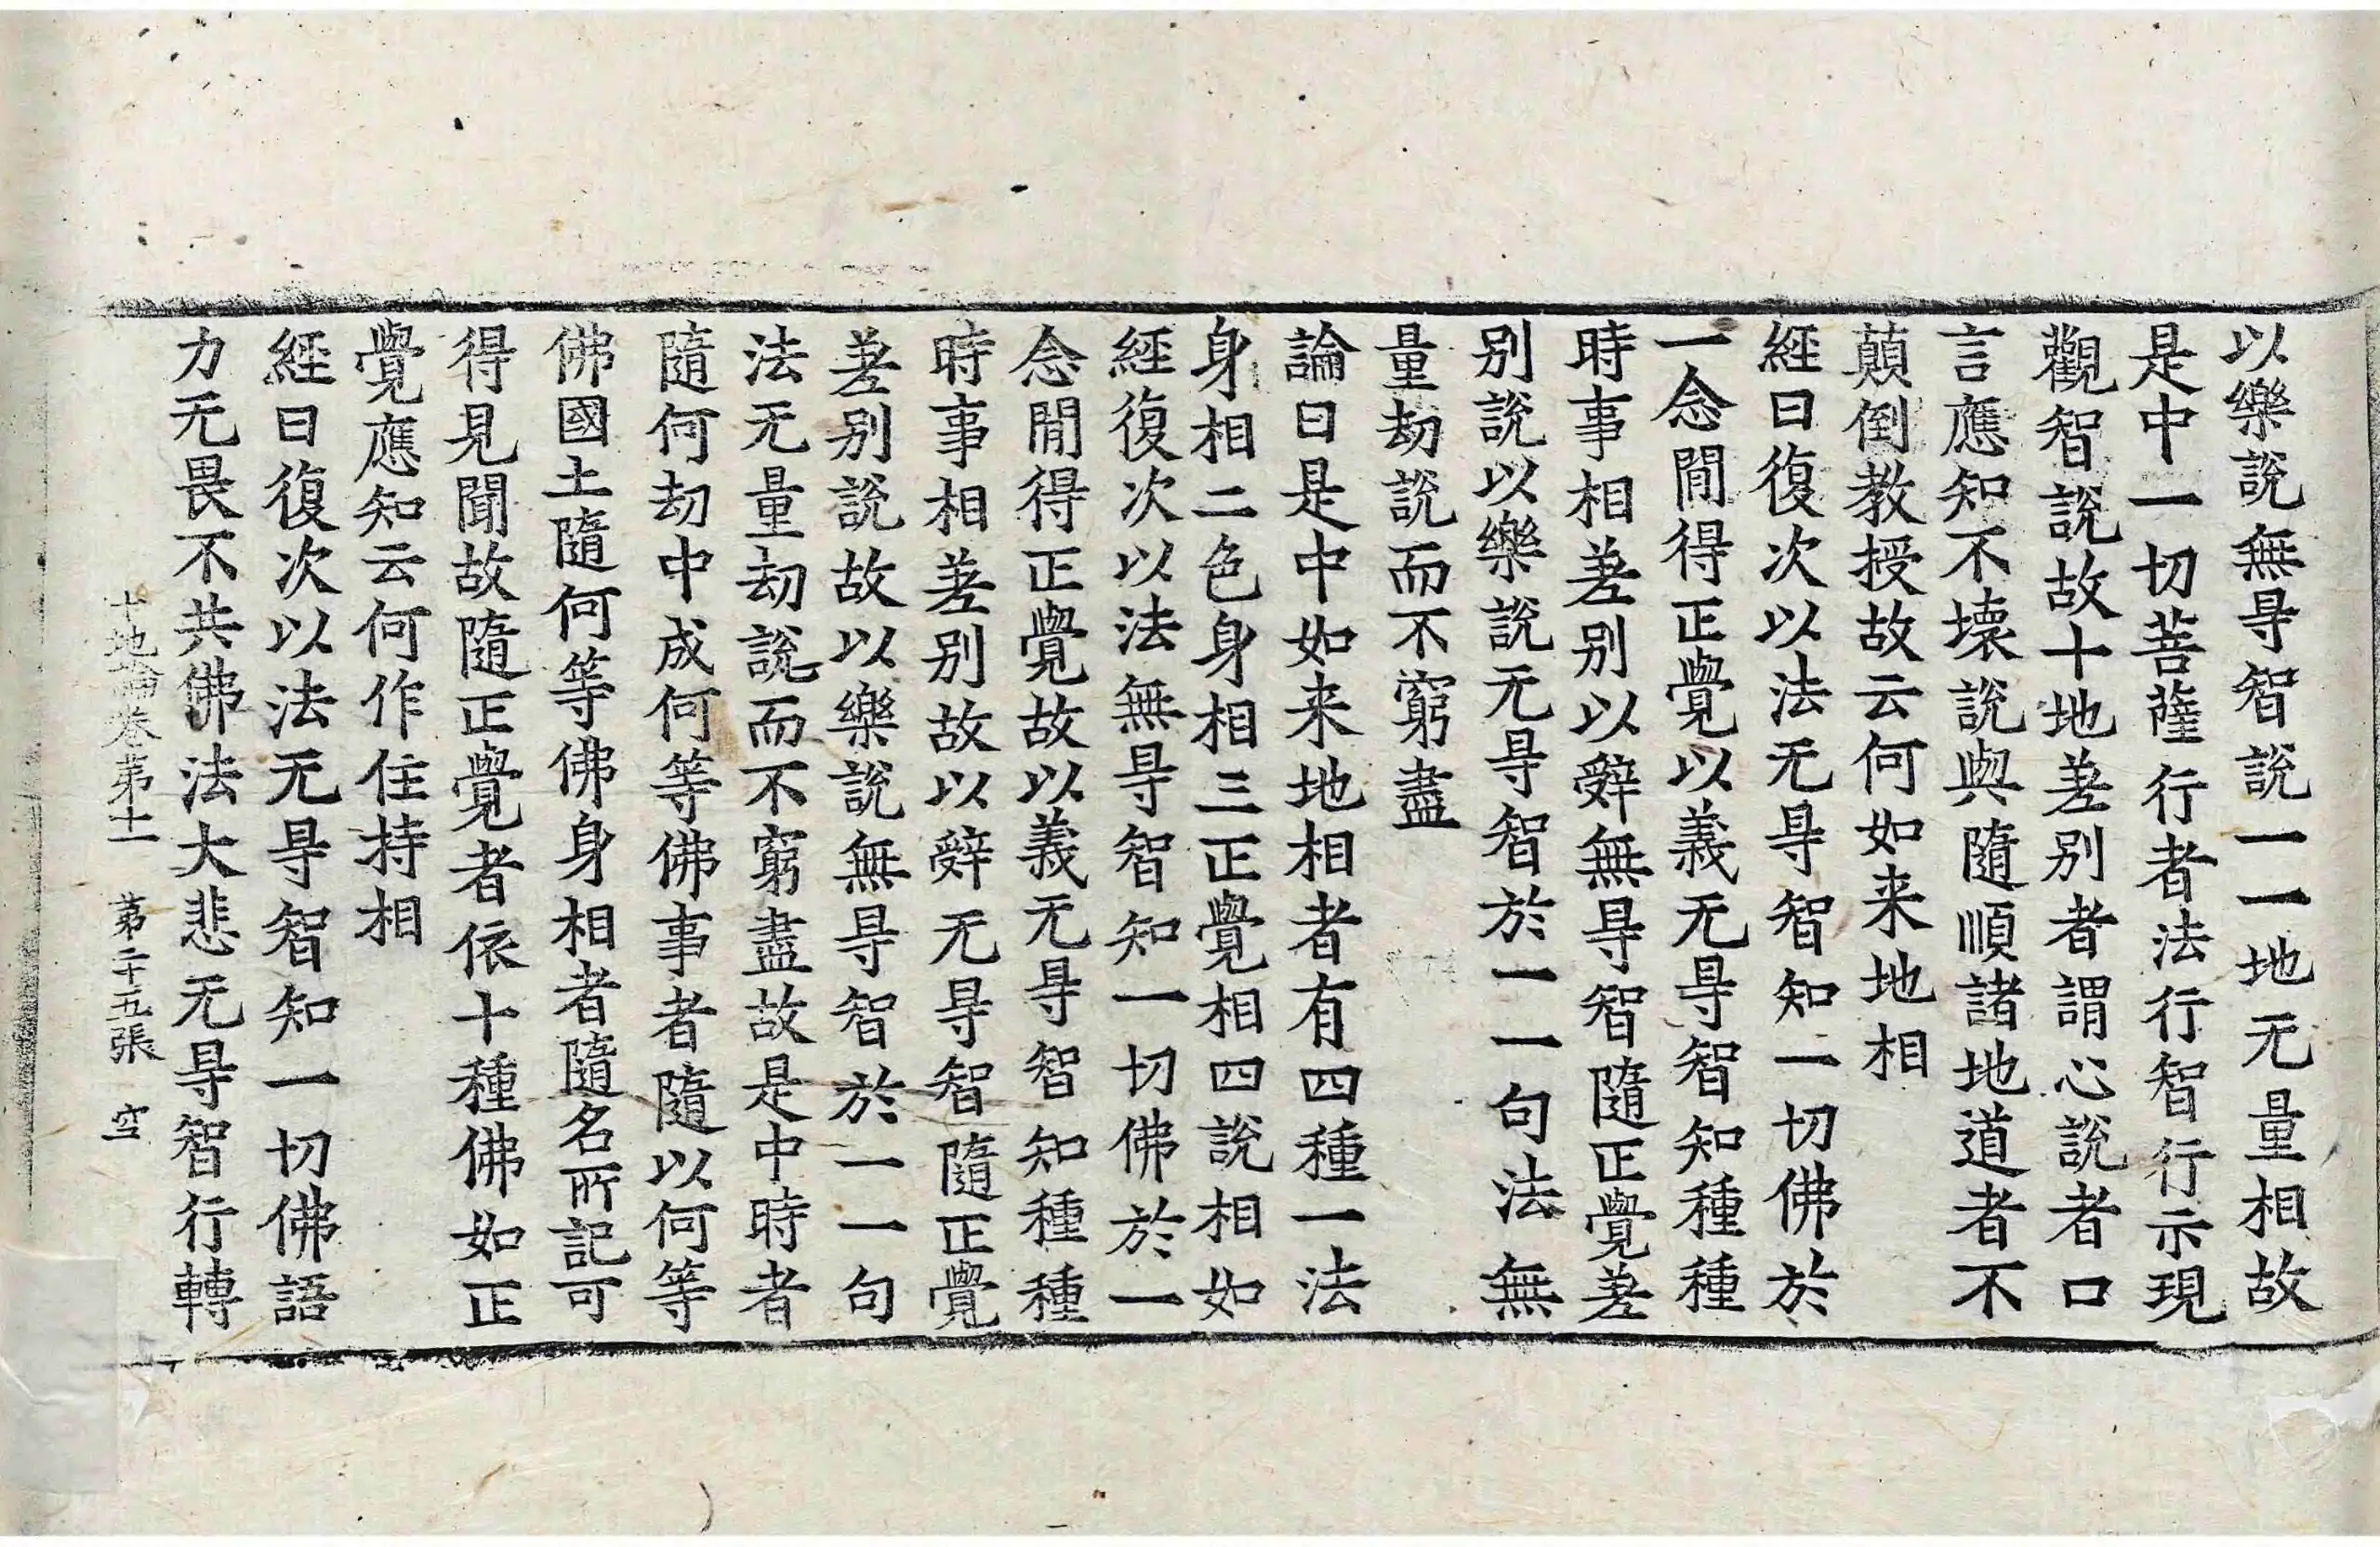 以樂說無㝵智說一一地无量相故
是中一切菩薩行者法行智行示現
觀智說故十地差别者謂心說者口
言應知不壞說與隨順諸地道者不
顛倒教授故云何如来地相
經曰復次以法无㝵智知一切佛於
一念間得正覺以義无㝵智知種種
時事相差别以辤無㝵智隨正覺差
别說以樂說无㝵智於一一句法無
量劫說而不窮盡
論曰是中如来地相者有四種一法
身相二色身相三正覺相四說相如
經復次以法無㝵智知一切佛於一
念間得正覺故以義无㝵智知種種
時事相差别故以辤无㝵智隨正覺
差别說故以樂說無㝵智於一一句
法无量劫說而不窮盡故是中時者
隨何劫中成何等佛事者隨以何等
佛國土隨何等佛身相者隨名所記可
得見聞故隨正覺者依十種佛如正
覺應知云何作住持相
經曰復次以法无㝵智知一切佛語
力无畏不共佛法大悲无㝵智行轉
十地論卷第十一 第二十五張 空